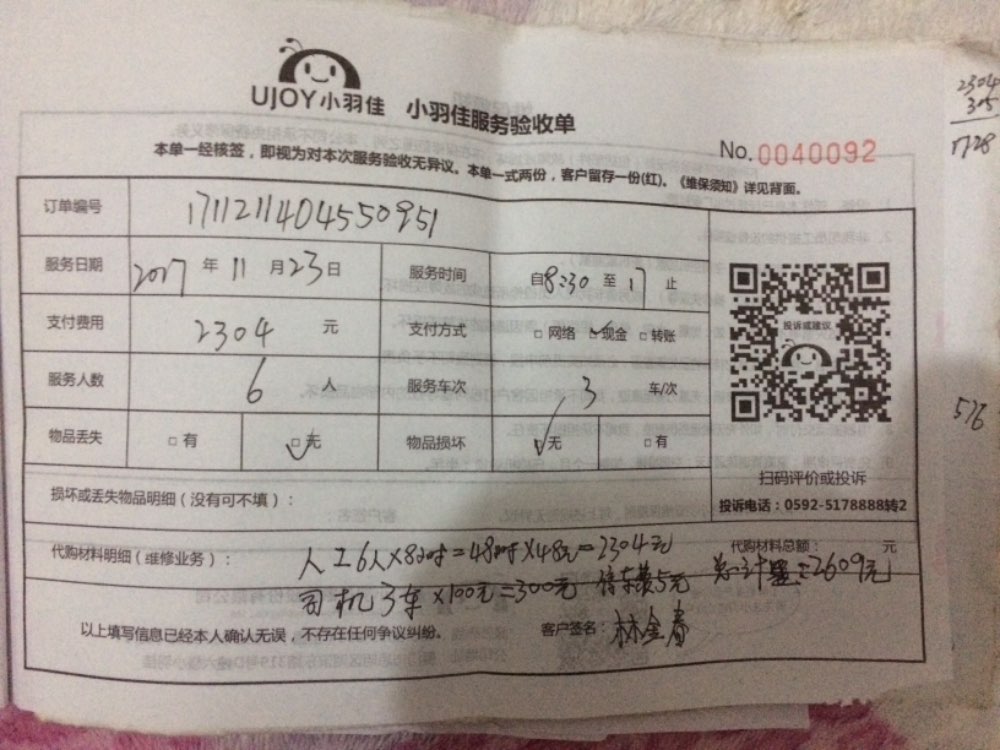 UJOY小羽佳 小羽佳服务验收单
No. 0040092
本单一经核签，即视为对本次服务验收无异议。本单一式两份，客户留存一份(红)。《维保须知》详见背面。
订单编号 1711211404550951
服务日期 2017 年 11 月 23 日 服务时间 自8:30 至 17 止
支付费用 2304 元 支付方式 □ 网络 □ 现金 □ 转账
投诉或建议
服务人数 6 人 服务车次 3 车/次
物品丢失 □ 有 □ 无 物品损坏 □ 无 □ 有
扫码评价或投诉
投诉电话：0592-5178888转2
损坏或丢失物品明细（没有可不填）：
代购材料明细（维修业务）： 人工6人×8小时=48小时×48元=2304元 代购材料总额： 元
司机3车×100元=300元 停车费5元 总计：2609元
以上填写信息已经本人确认无误，不存在任何争议纠纷。 客户签名：林金春
2304
305
576